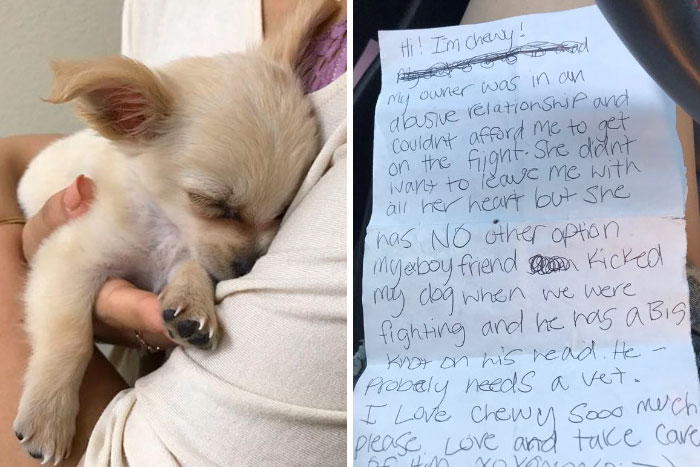 Hi! I'm chewy!
my owner was in an
abusive relationship and
couldnt afford me to get
on the flight. She didnt
want to leave me with
all her heart but she
has NO other option
my boyfriend kicked
my dog when we were
fighting and he has a Big
knot on his head. He -
Probely needs a vet.
I Love Chewy Sooo much
please Love and take care
of Him